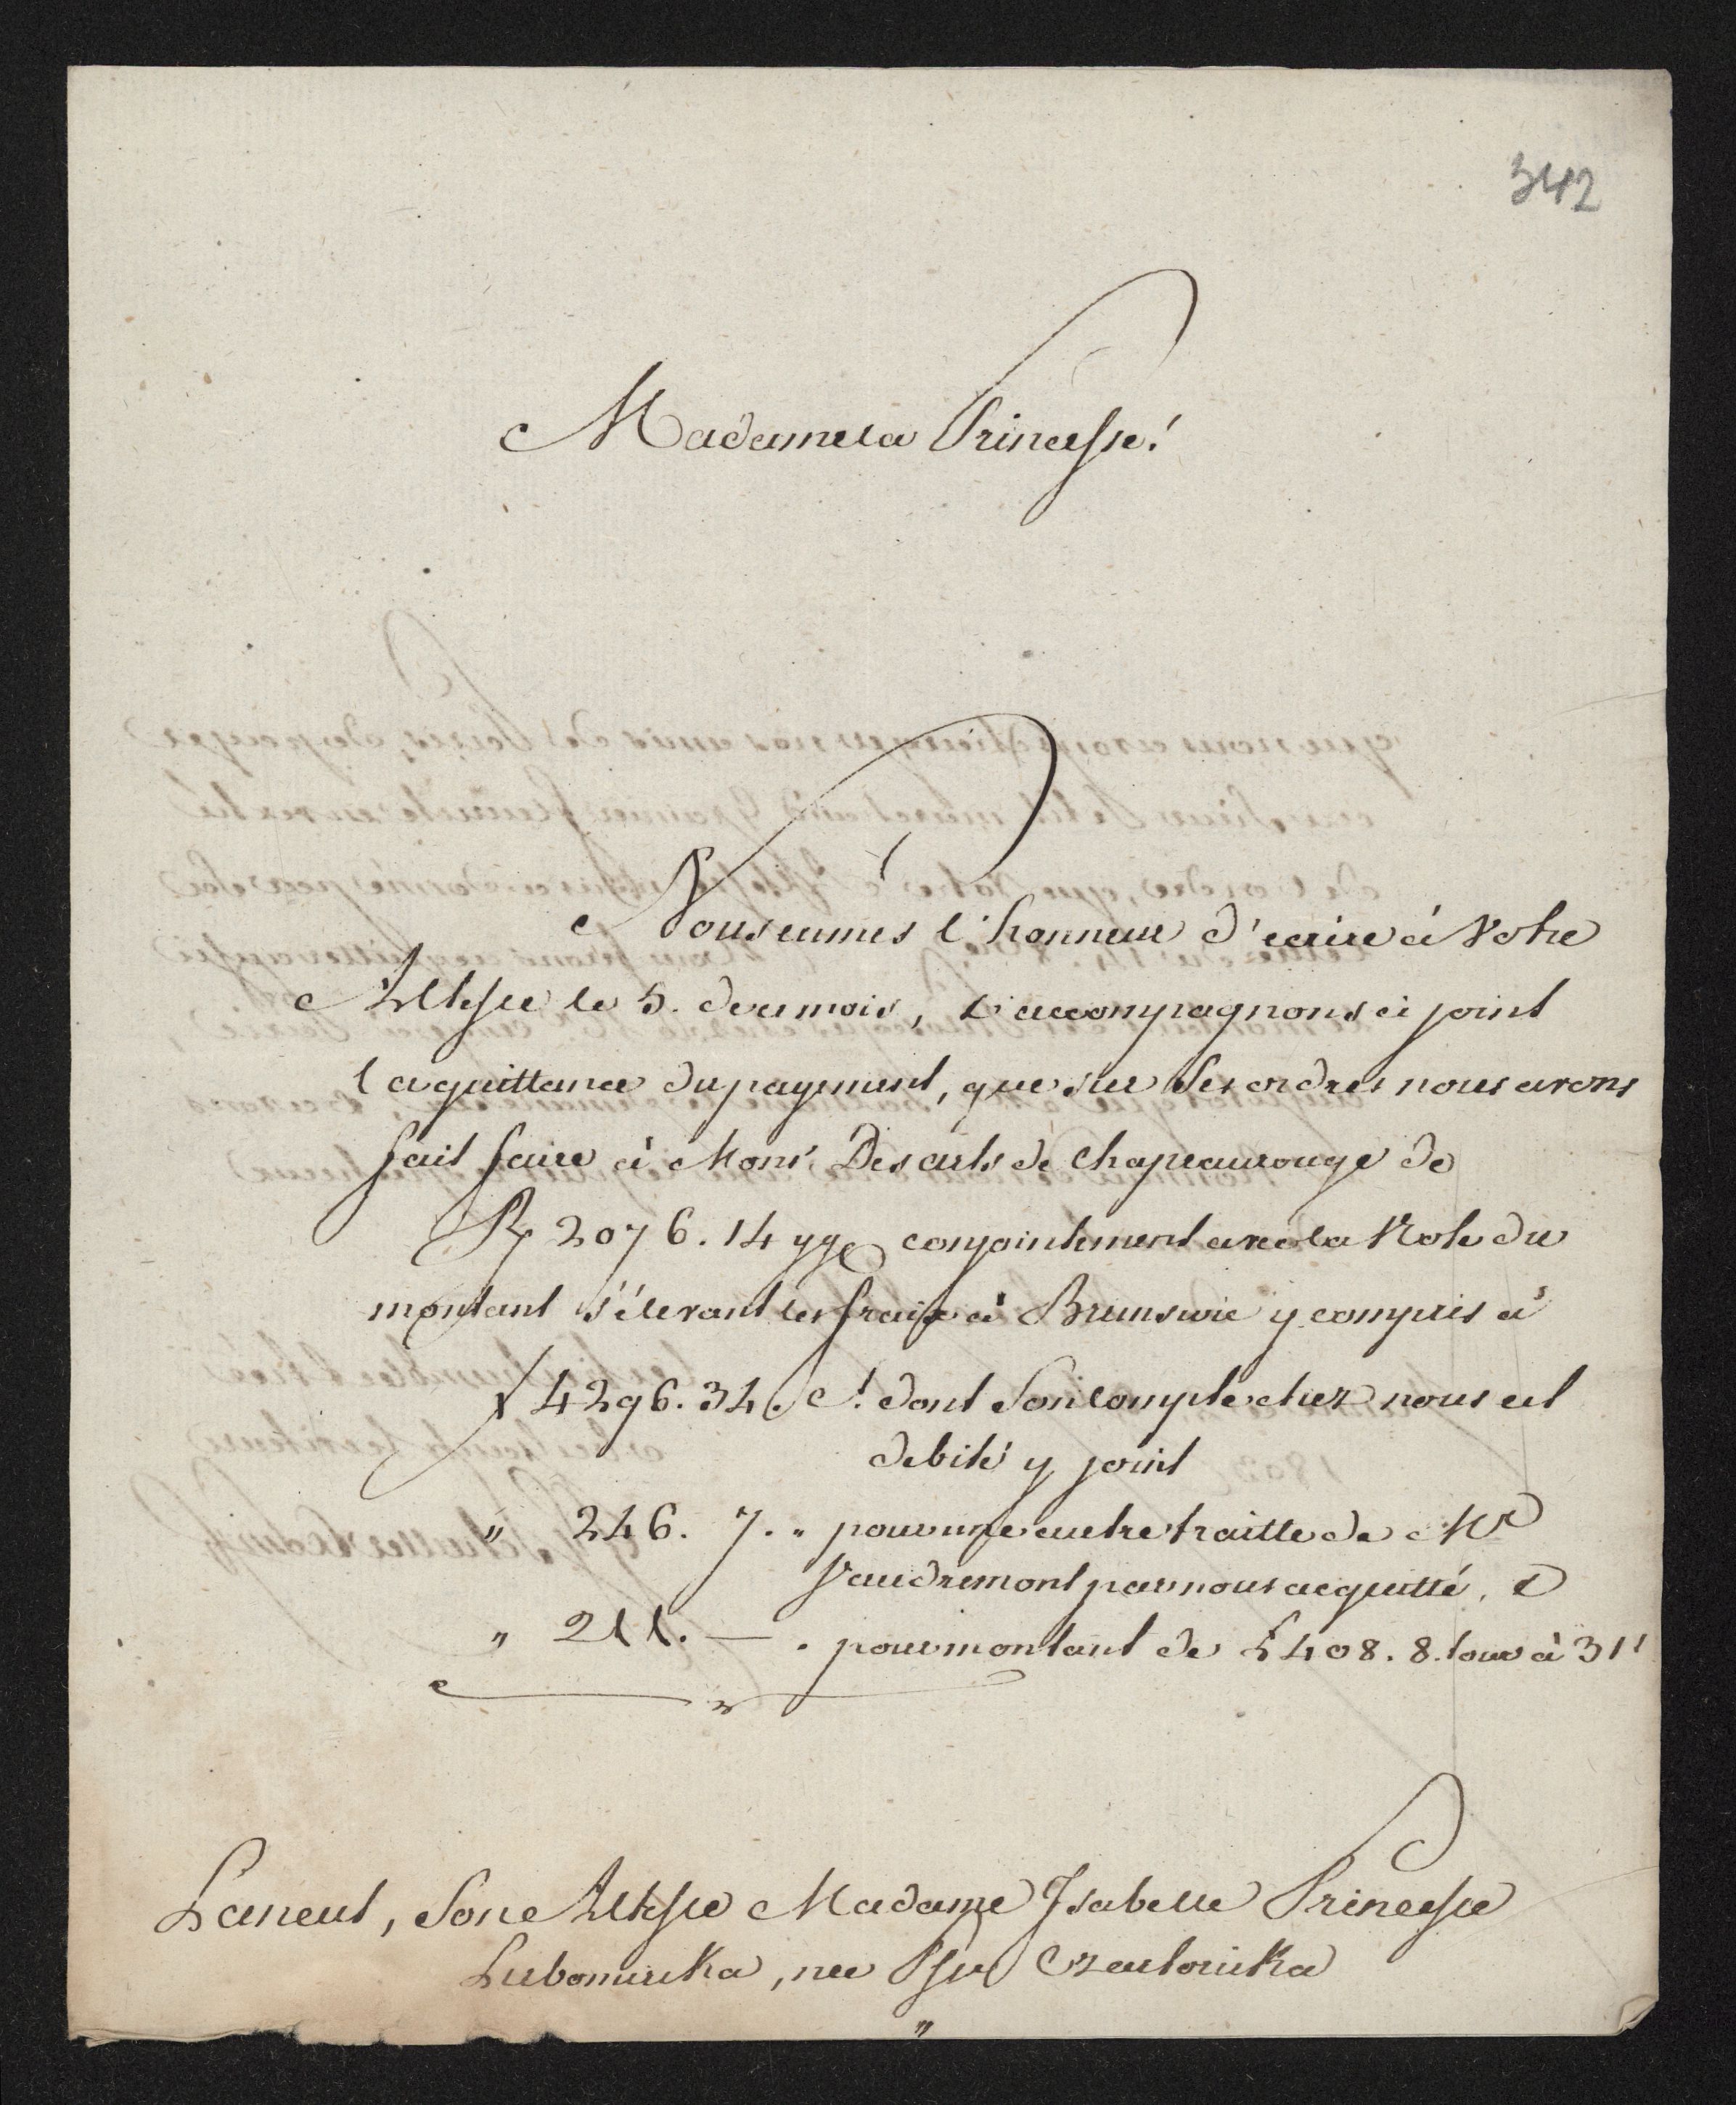 342
Madame la Princesse!
Nous eumes l'honneur d'ecrire à Votre
Altesse le 5. de ce mois, L'accompagnons ci joint
la quittance du payement, que sur Ses ordres nous avons
fait faire à Mons. Des arts de Chapeaurouge de
2076. 14 gg conjointement avec la Note du
montant s'élevant les fraix à Brunswic y compris à
f 4296. 34. Ct. dont Son compte chez nous est
debité y joint
" 246. 7. " pour une autre traitte de Mr
Vaudremont par nous acquitté, &
" 211. — . pour montant de 408. 8. tour à 31
Lancut, Son Altesse Madame Isabelle Princesse
Lubomirska, nee Psse Czartoriska
"